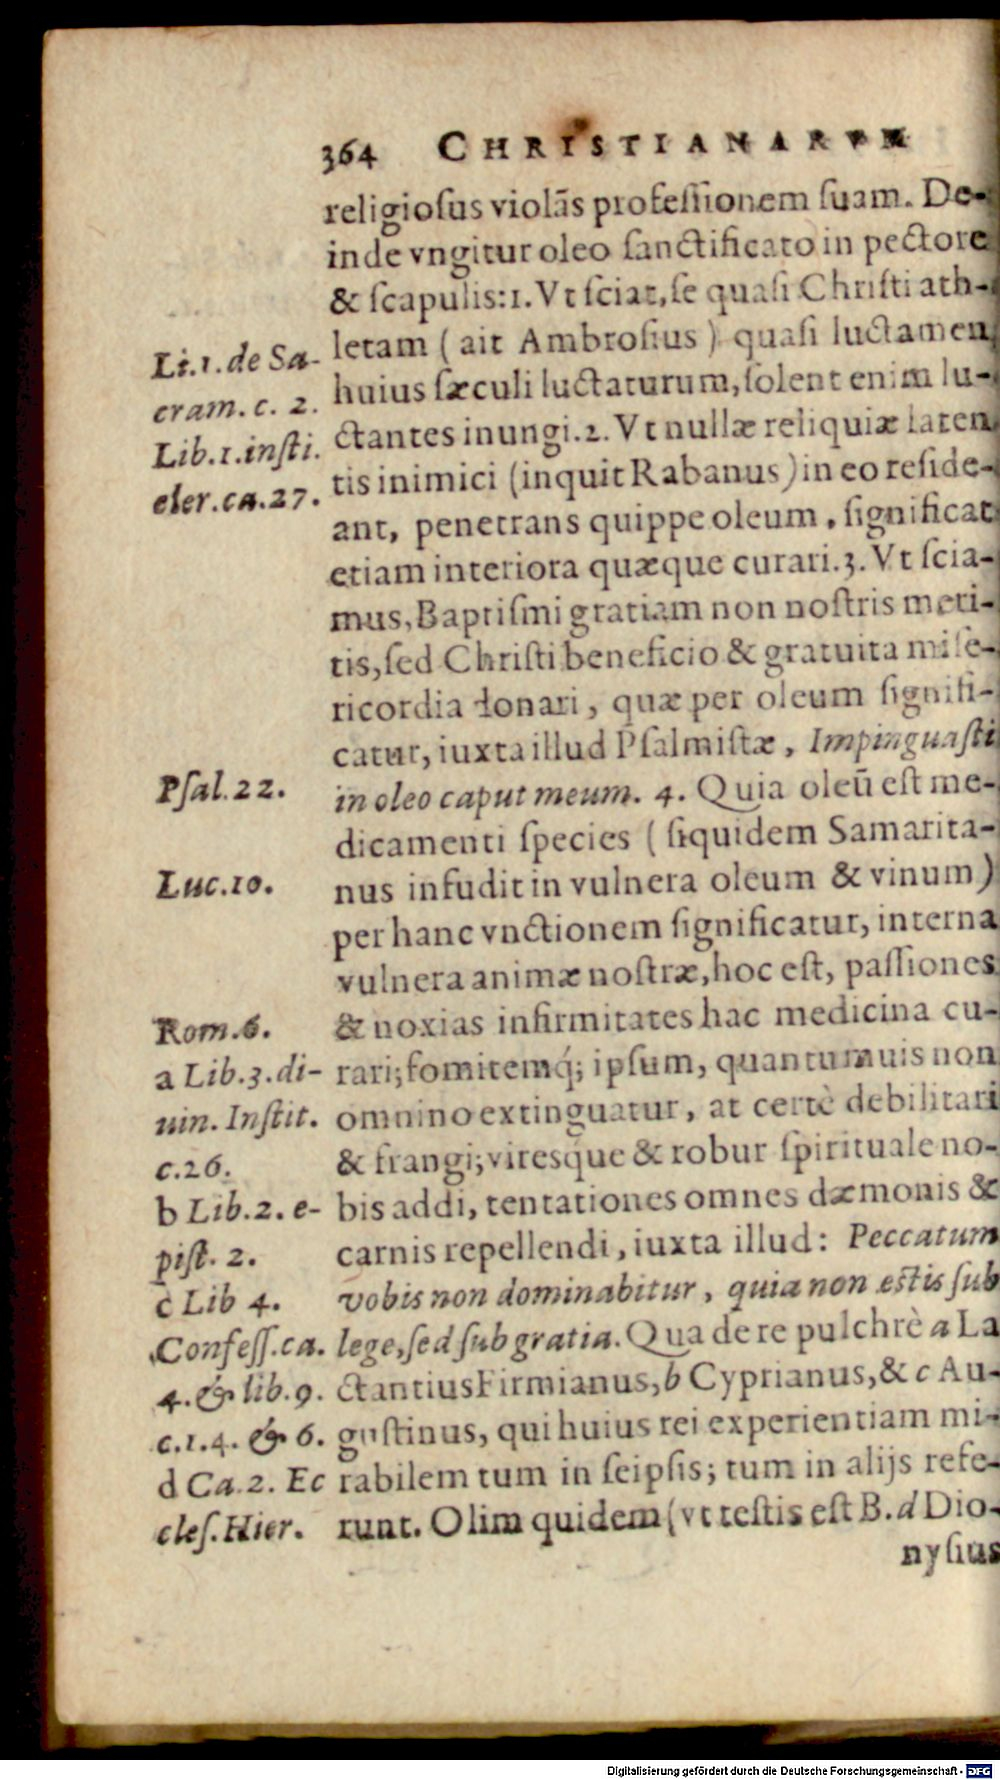 364 CHRISTIANARVM
religiosus violãs professionem suam. De-
inde vngitur oleo sanctificato in pectore
& scapulis: 1. Vt sciat, se quasi Christi ath-
letam ( ait Ambrosius ) quasi luctamen
huius sæculi luctaturum, solent enim lu-
ctantes inungi. 2. Vt nullæ reliquiæ laten
tis inimici (inquit Rabanus) in eo reside-
ant, penetrans quippe oleum, significat
etiam interiora quæque curari. 3. Vt scia-
mus, Baptismi gratiam non nostris meri-
tis, sed Christi beneficio & gratuita mise-
ricordia donari, quæ per oleum signifi-
catur, iuxta illud Psalmistæ, Impinguasti
in oleo caput meum. 4. Quia oleũ est me-
dicamenti species ( siquidem Samarita-
nus infudit in vulnera oleum & vinum)
per hanc vnctionem significatur, interna
vulnera animæ nostræ, hoc est, passiones
& noxias infirmitates hac medicina cu-
rari; fomitemq́; ipsum, quantumuis non
omnino extinguatur, at certè debilitari
& frangi; viresq́ue & robur spirituale no-
bis addi, tentationes omnes dæmonis &
carnis repellendi, iuxta illud: Peccatum
vobis non dominabitur, quia non estis sub
lege, sed sub gratia. Qua de re pulchrè a La
ctantius Firmianus, b Cyprianus, & c Au-
gustinus, qui huius rei experientiam mi-
rabilem tum in seipsis; tum in alijs refe-
runt. Olim quidem (vt testis est B. d Dio-
nysius
Li. 1. de Sa-
cram. c. 2.
Lib. 1. insti.
cler. ca. 27.
Psal. 22.
Luc. 10.
Rom. 6.
a Lib. 3. di-
uin. Instit.
c. 26.
b Lib. 2. e-
pist. 2.
c Lib 4.
Confess. ca.
4. & lib. 9.
c. 1. 4. & 6.
d Ca. 2. Ec
cles. Hier.
Digitalisierung gefördert durch die Deutsche Forschungsgemeinschaft - DFG